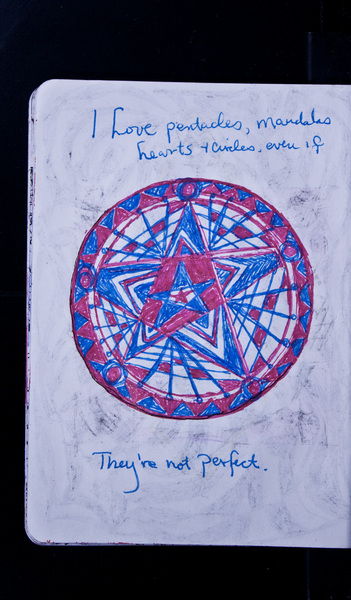 I Love pentacles, mandalas
hearts + circles, even if
They're not perfect.